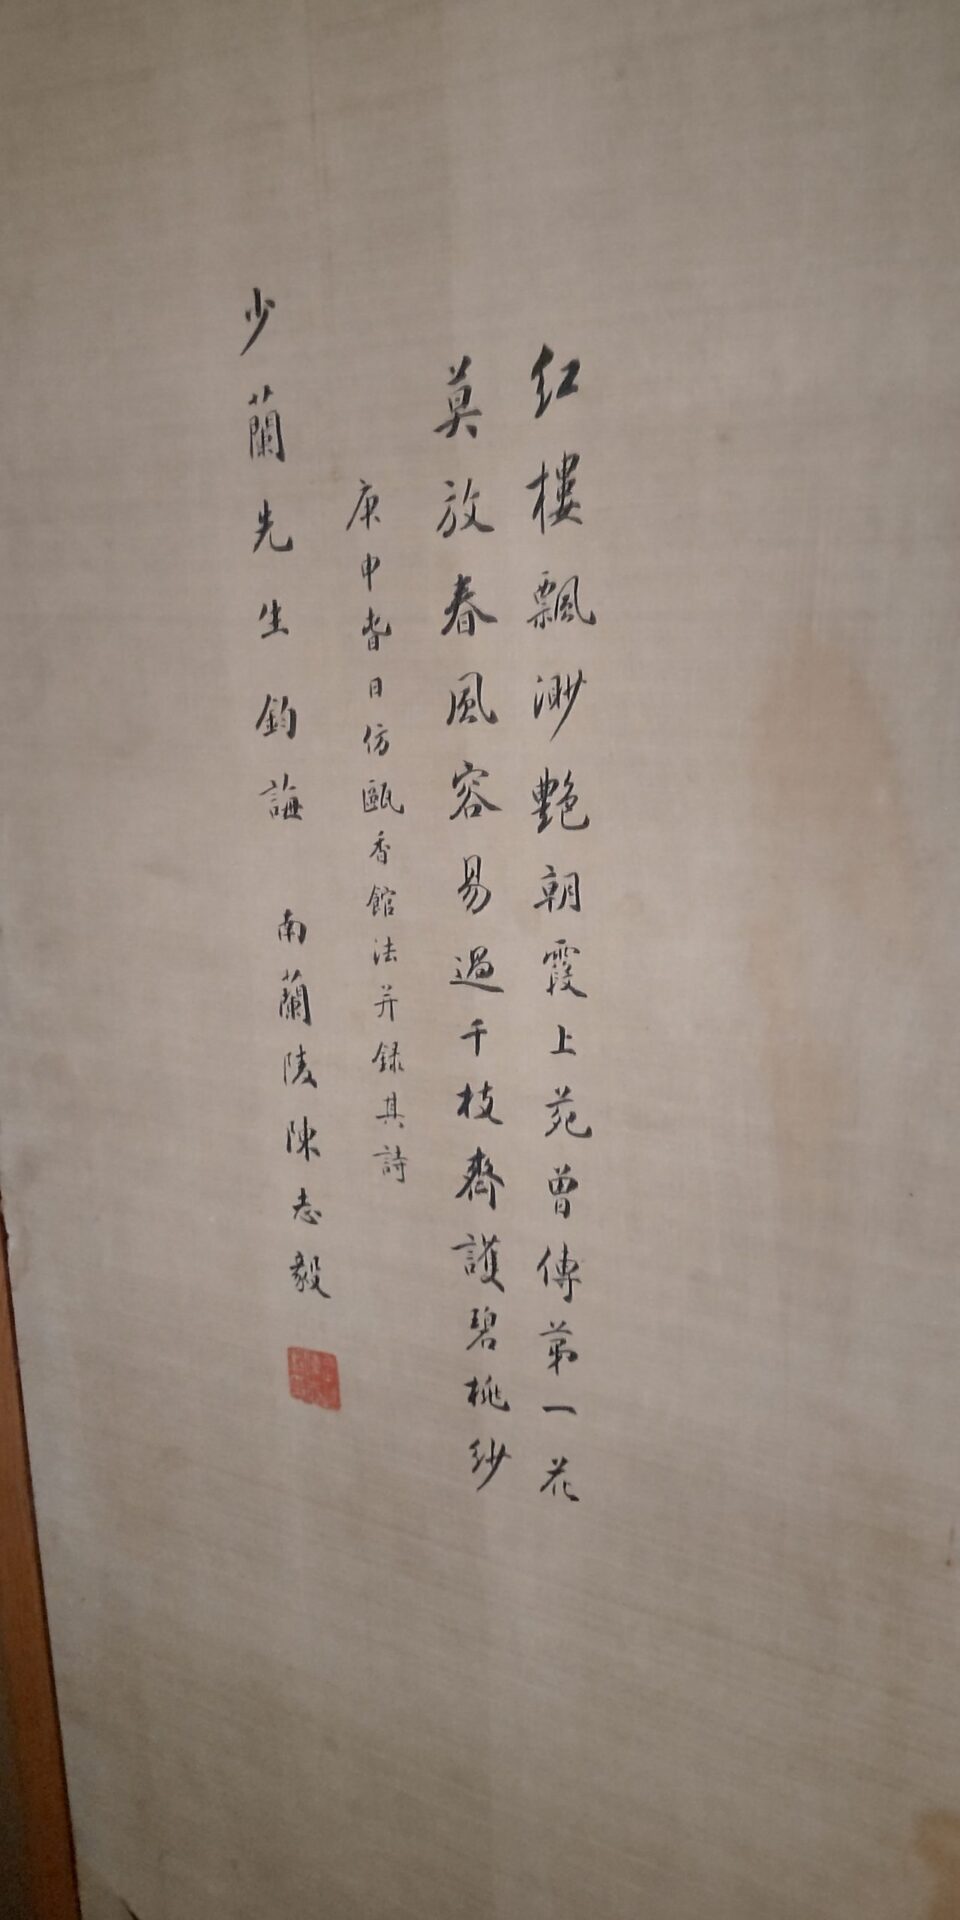 紅樓飄渺艷朝霞上苑曾傳第一花
莫放春風容易過千枝齊護碧桃紗
庚申春日仿甌香館法并録其詩
少蘭先生鈞誨 南蘭陵陳志毅